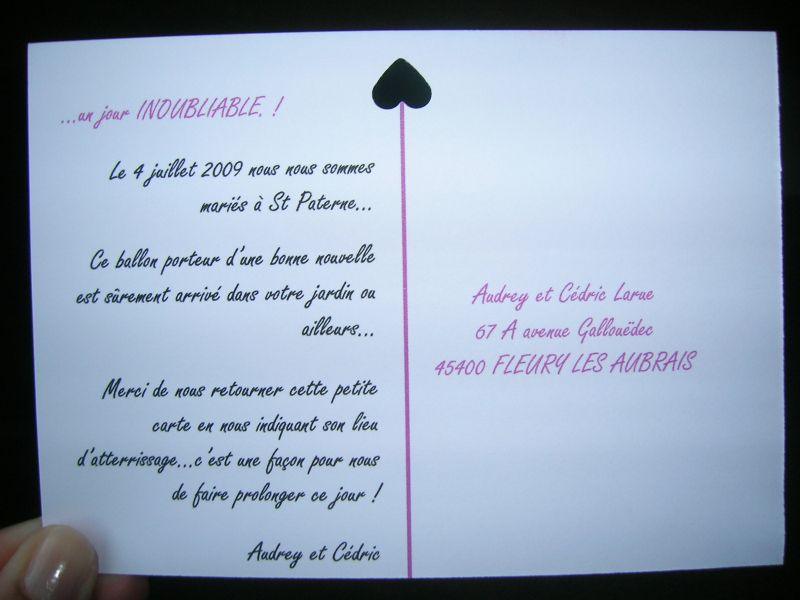 ...un jour INOUBLIABLE. !
Le 4 juillet 2009 nous nous sommes
mariés à St Paterne...
Ce ballon porteur d'une bonne nouvelle
est sûrement arrivé dans votre jardin ou
ailleurs...
Merci de nous retourner cette petite
carte en nous indiquant son lieu
d'atterrissage...c'est une façon pour nous
de faire prolonger ce jour !
Audrey et Cédric
Audrey et Cédric Larue
67 A avenue Gallouëdec
45400 FLEURY LES AUBRAIS